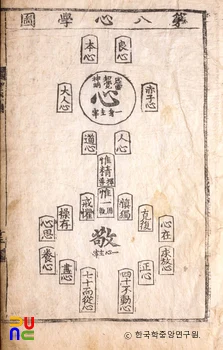 第八心學圖
良心
本心
虛靈
知覺
神明
心
一身主宰
赤子心
大人心
人心
道心
惟精擇善
惟一固執
愼獨
戒懼
克復
操存
心在
心思
求放心
養心
敬
一心主宰
正心
盡心
四十不動心
七十而從心
ⓒ 한국학중앙연구원